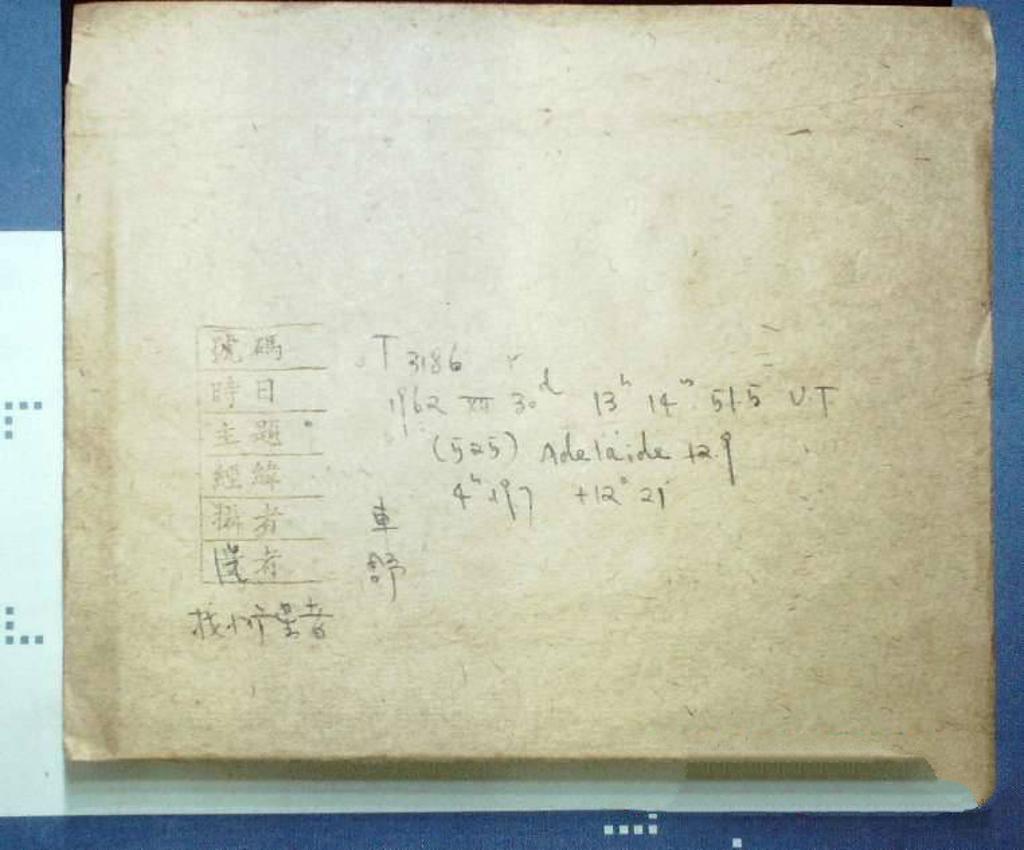 號碼 T 3186
時日 1962 XII 30ᵈ 13ʰ 14ᵐ 51.5 U.T
主題 (525) Adelaide 12.9
經緯 4ʰ 19.7 +12° 21'
攝者 車
者 舒
找小行星者